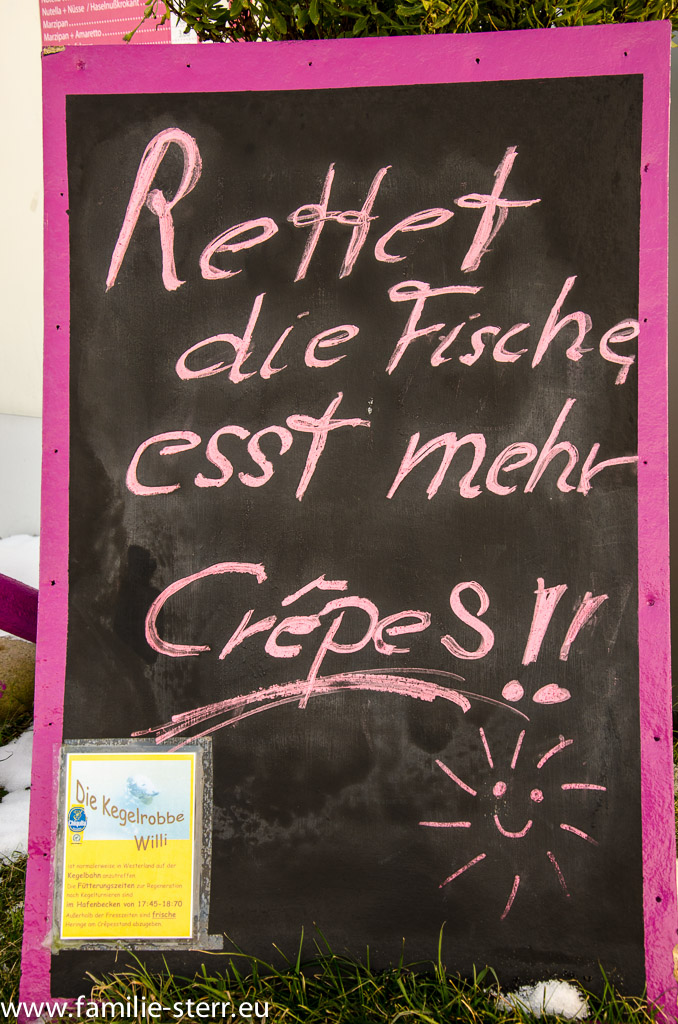 Nutella + Nüsse / Haselnußkrokant
Marzipan
Marzipan + Amaretto
Rettet
die Fische
esst mehr
Crêpes!!
Die Kegelrobbe
Willi
ist normalerweise in Westerland auf der
Kegelbahn anzutreffen
Die Fütterungszeiten zur Regeneration
nach Kegelturnieren sind
im Hafenbecken von 17:45-18:70
Außerhalb der Fresszeiten sind frische
Heringe am Crêpesstand abzugeben.
www.familie-sterr.eu